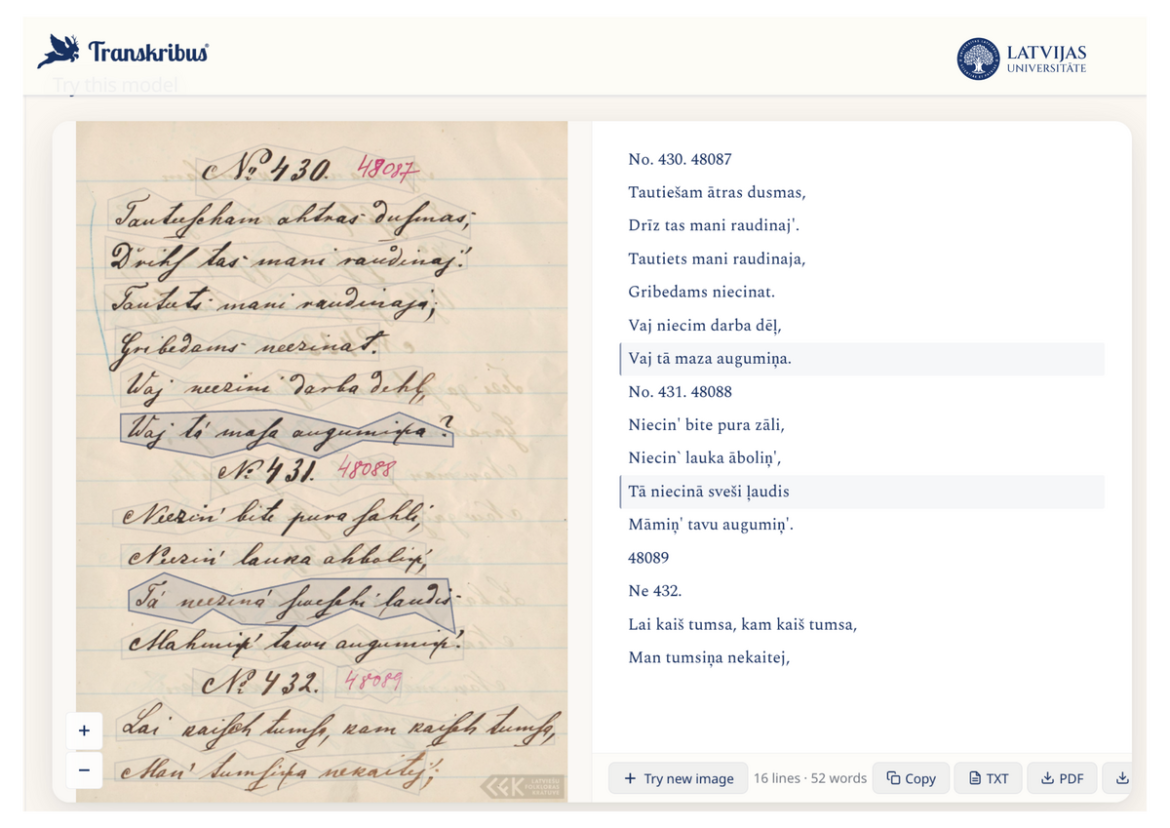 Transkribus
LATVIJAS
UNIVERSITĀTE
Try this model
№ 430. 48087
Tautuscham ahtras dusmas;
Drihs tas mani raudinaj'.
Taututs mani raudinaja;
Gribedams neezinat.
Waj neezini darba dehļ,
Waj tá masa augumiņa?
№ 431. 48088
Neezin' bite pura sahli,
Neezin' lauka ahboliņ',
Tá neeziná sweschi laudis
Mahmiņ' tawu augumiņ'.
№ 432. 48089
Lai kaisch tumsa, kam kaisch tumsa,
Man' tumsiņa nekaitej;
LATVIEŠU
FOLKLORAS
KRĀTUVE
+
−
No. 430. 48087
Tautiešam ātras dusmas,
Drīz tas mani raudinaj'.
Tautiets mani raudinaja,
Gribedams niecinat.
Vaj niecim darba dēļ,
Vaj tā maza augumiņa.
No. 431. 48088
Niecin' bite pura zāli,
Niecin` lauka āboliņ',
Tā niecinā sveši ļaudis
Māmiņ' tavu augumiņ'.
48089
Ne 432.
Lai kaiš tumsa, kam kaiš tumsa,
Man tumsiņa nekaitej,
+ Try new image 16 lines · 52 words Copy TXT PDF